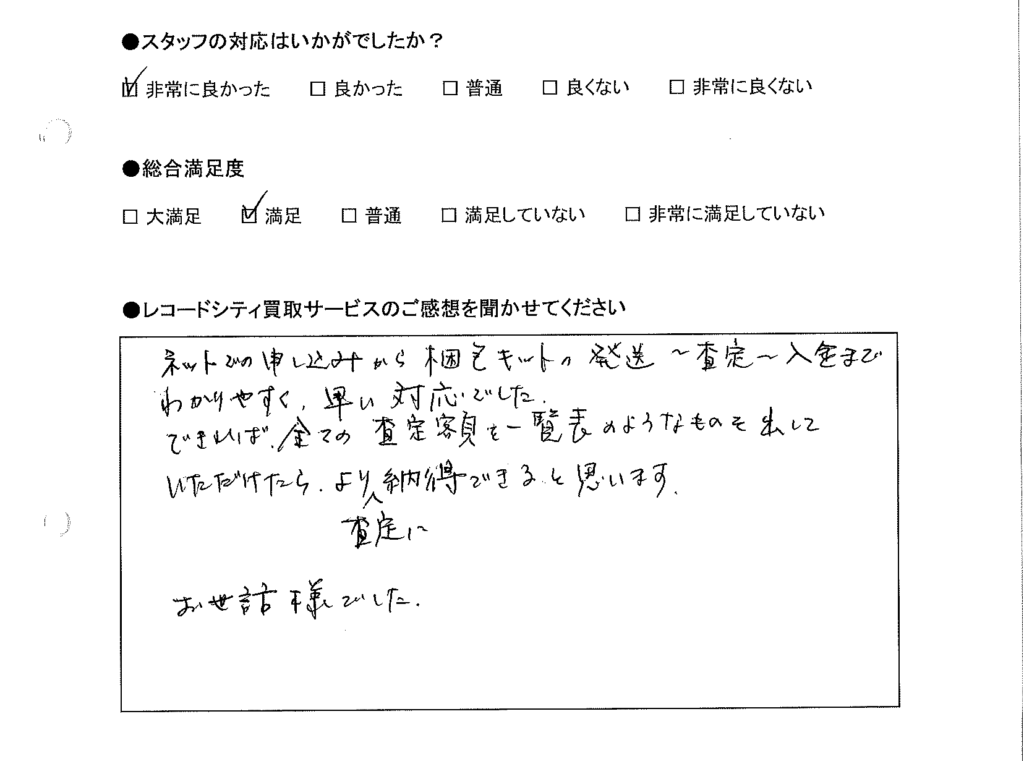 ●スタッフの対応はいかがでしたか？
☑ 非常に良かった □ 良かった □ 普通 □ 良くない □ 非常に良くない
●総合満足度
□ 大満足 ☑ 満足 □ 普通 □ 満足していない □ 非常に満足していない
●レコードシティ買取サービスのご感想を聞かせてください
ネットでの申し込みから梱包キットの発送～査定～入金まで
わかりやすく、早い対応でした.
できれば、全ての査定額を一覧表のようなものを出して
いただけたら、より納得できると思います.
査定に
お世話様でした.